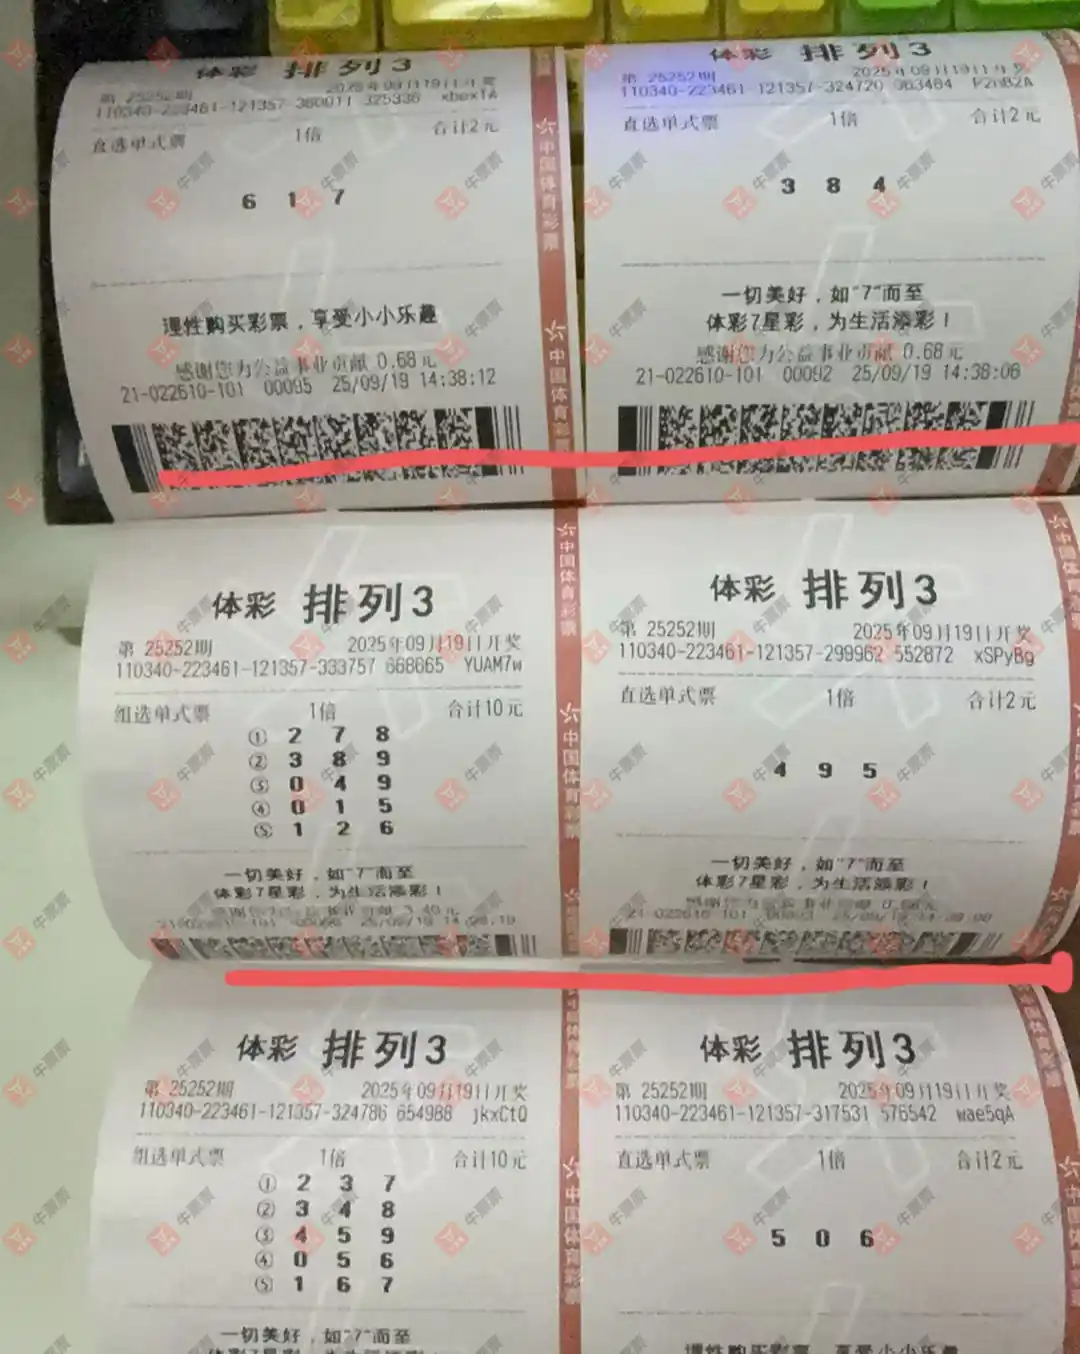 体彩 排列3
第 25252期 2025年09月19日开奖
110340-223461-121357-360011 325336 xbox1A
直选单式票 1倍 合计2元
6 1 7
理性购买彩票，享受小小乐趣
感谢您为公益事业贡献 0.68元
21-022610-101 00095 25/09/19 14:38:12
体彩 排列3
第 25252期 2025年09月19日开奖
110340-223461-121357-324720 063484 P2nB2A
直选单式票 1倍 合计2元
3 8 4
一切美好，如"7"而至
体彩7星彩，为生活添彩！
感谢您为公益事业贡献 0.68元
21-022610-101 00092 25/09/19 14:38:06
中国体育彩票
中国体育彩票
体彩 排列3
第 25252期 2025年09月19日开奖
110340-223461-121357-333757 668665 YUAM7w
组选单式票 1倍 合计10元
① 2 7 8
② 3 8 9
③ 0 4 9
④ 0 1 5
⑤ 1 2 6
一切美好，如"7"而至
体彩7星彩，为生活添彩！
感谢您为公益事业贡献 3.40元
体彩 排列3
第 25252期 2025年09月19日开奖
110340-223461-121357-299962 552872 xSPyBg
直选单式票 1倍 合计2元
4 9 5
一切美好，如"7"而至
体彩7星彩，为生活添彩！
感谢您为公益事业贡献 0.68元
中国体育彩票
中国体育彩票
体彩 排列3
第 25252期 2025年09月19日开奖
110340-223461-121357-324786 654988 jkxCtQ
组选单式票 1倍 合计10元
① 2 3 7
② 3 4 8
③ 4 5 9
④ 0 5 6
⑤ 1 6 7
一切美好，如"7"而至
体彩 排列3
第 25252期 2025年09月19日开奖
110340-223461-121357-317531 576542 wae5qA
直选单式票 1倍 合计2元
5 0 6
理性购买彩票，享受小小乐趣
中国体育彩票
牛票票